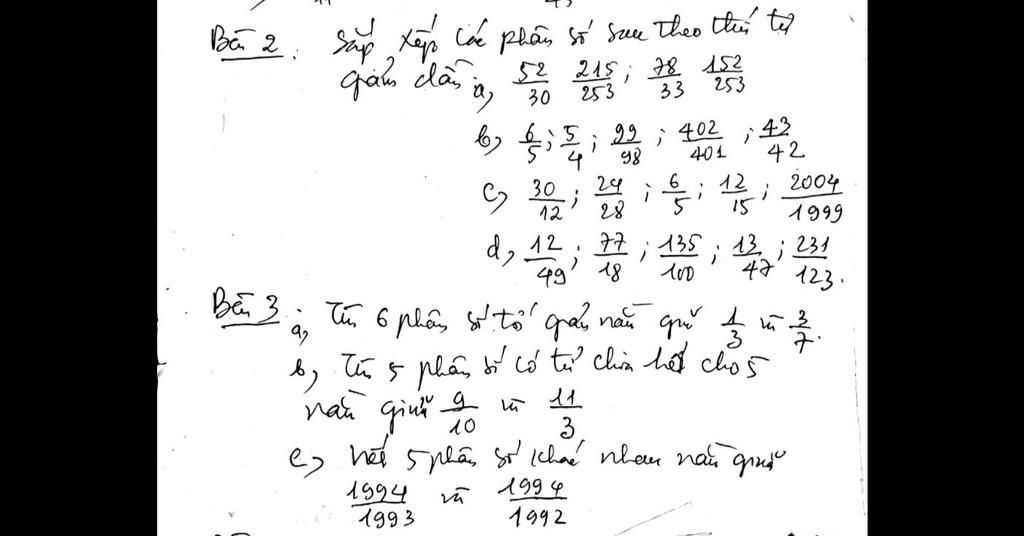 Bài 2: Sắp xếp các phân số sau theo thứ tự
giảm dần a, 52/30 215/253; 78/33 152/253
b, 6/5; 5/4; 99/98; 402/401; 43/42
c, 30/12; 24/28; 6/5; 12/15; 2004/1999
d, 12/49; 77/18; 135/100; 13/47; 231/123.
Bài 3: a, Tìm 6 phân số tối giản nằm giữa 1/3 và 3/7.
b, Tìm 5 phân số có tử chia hết cho 5
nằm giữa 9/10 và 11/3
c, Viết 5 phân số khác nhau nằm giữa
1994/1993 và 1994/1992